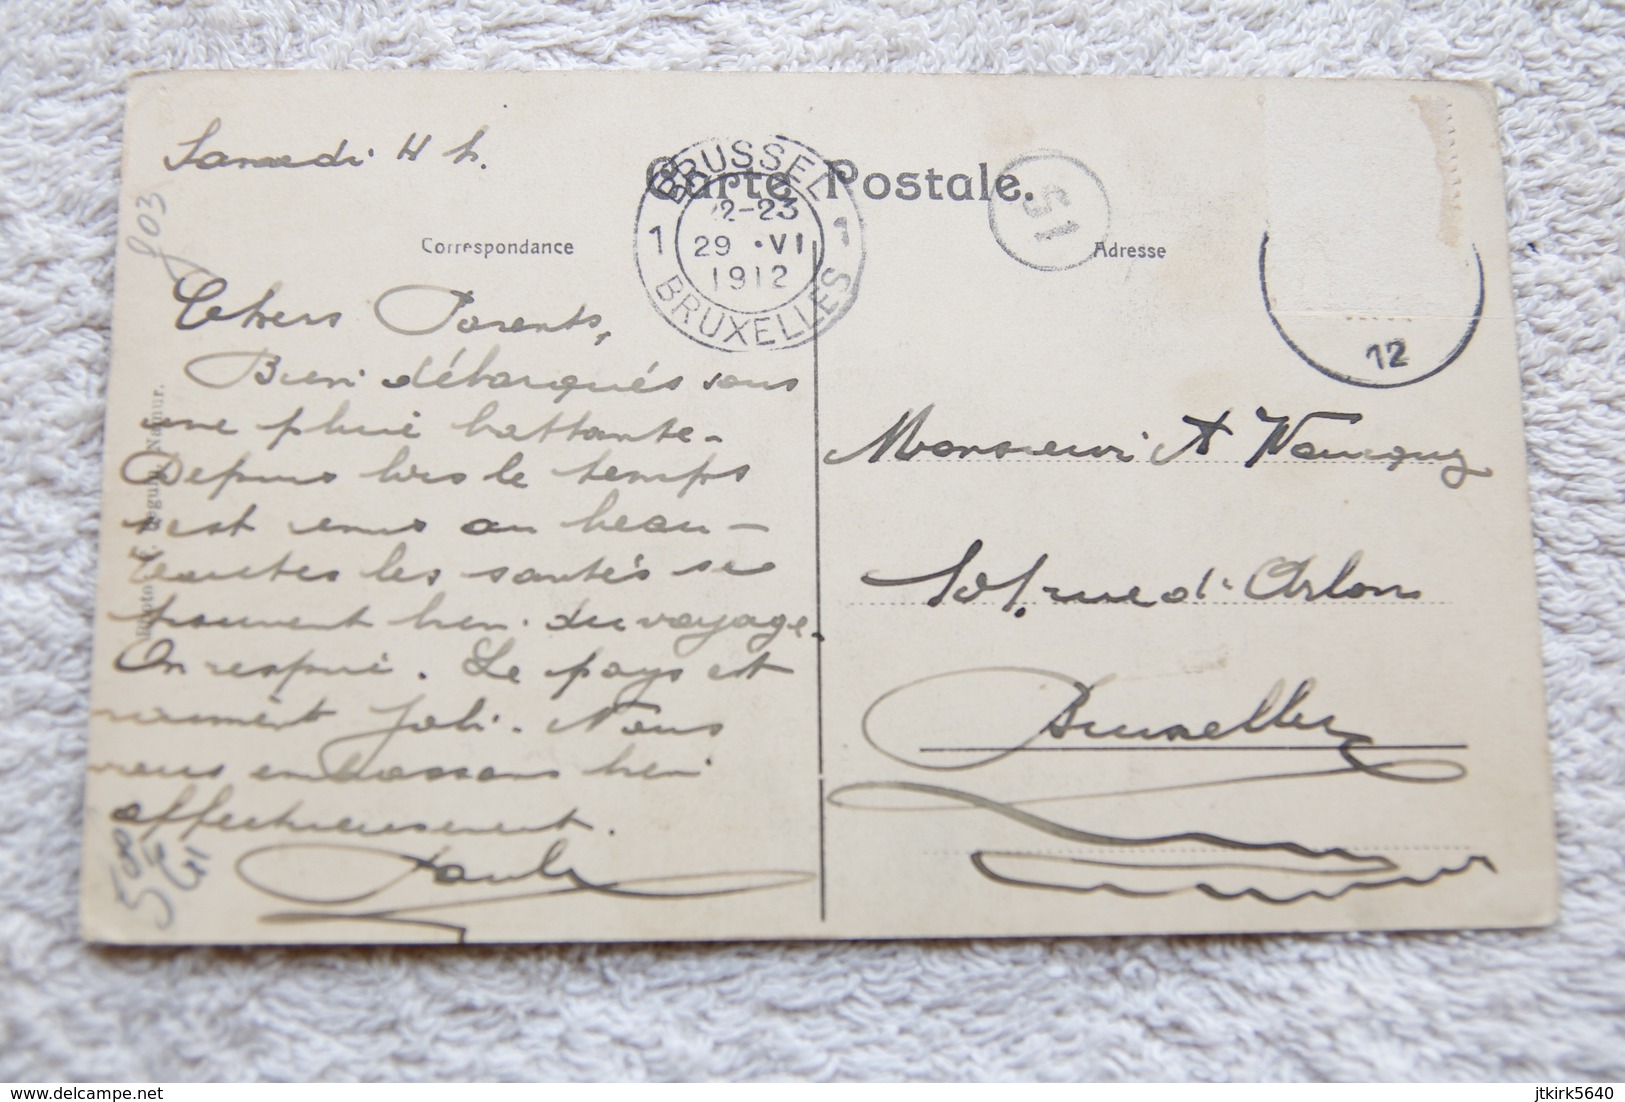 Samedi 4 h.
903
Carte Postale.
BRUSSEL
22-23
1 29 · VI 1
1912
BRUXELLES
51
Correspondance
Adresse
12
Chers Parents,
Bien débarqués sous
une pluie battante.
Depuis lors le temps
s'est remis au beau -
Toutes les santés se
trouvent bien du voyage.
On respire. Le pays est
vraiment joli. Nous
vous embrassons bien
affectueusement.
Paula
Monsieur A
101, rue d'Arlon
Bruxelles
Namur.
508
www.delcampe.net
jtkirk5640